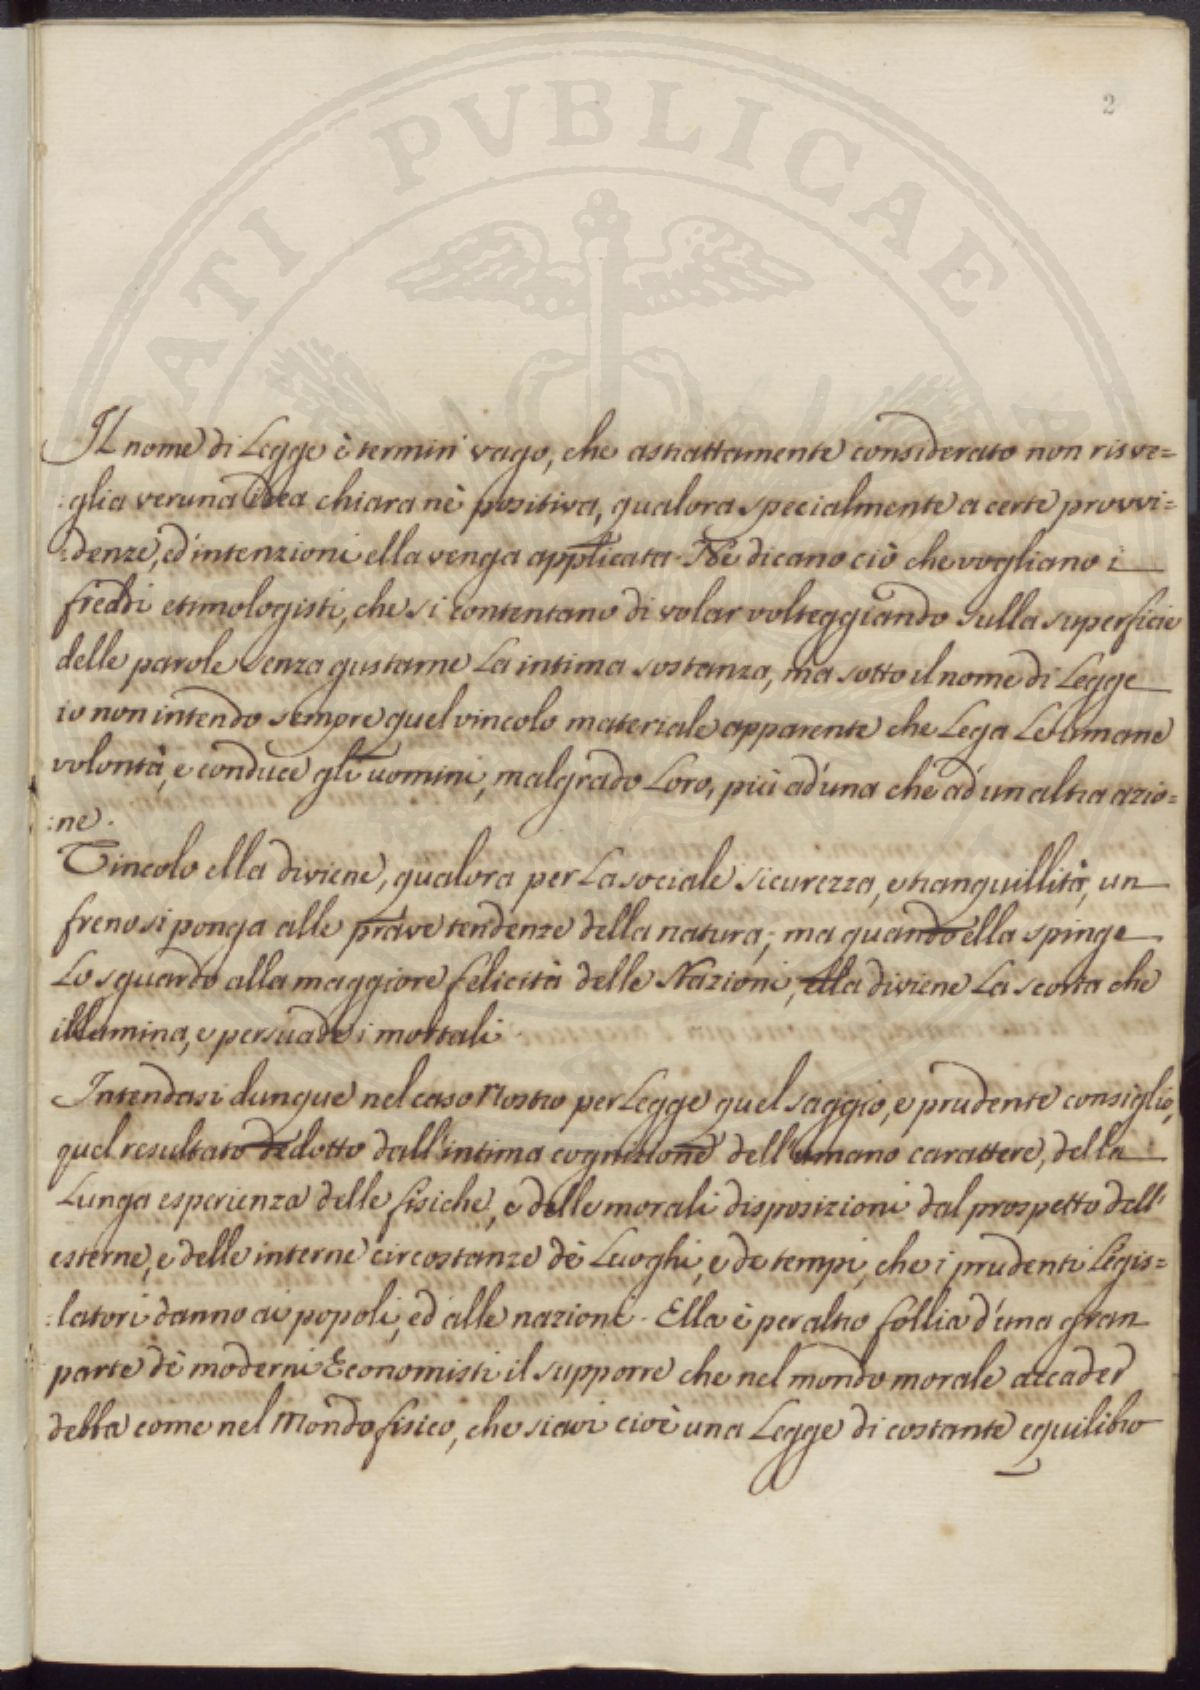 2
Il nome di Legge è termin' vago, che astrattamente considerato non risve=
:glia veruna idea chiara nè positiva, qualora specialmente a certe provvi=
:denze, ed'intenzioni ella venga applicata. Nè dicano ciò che vogliano i
freddi etimologisti, che si contentano di volar volteggiando sulla superficie
delle parole senza gustarne La intima sostanza, ma sotto il nome di Legge
io non intendo sempre quel vincolo materiale apparente che Lega Le Umane
volontà, e conduce gli uomini, malgrado Loro, più ad'una che ad'un altra azio=
:ne.
Vincolo ella diviene, qualora per La sociale sicurezza, e tranquillità, un
freno si ponga alle prave tendenze della natura; ma quando ella spinge
Lo sguardo alla maggiore felicità delle Nazioni, ella diviene La scorta che
illumina, e persuade i mortali.
Intendasi dunque nel caso Nostro per Legge quel saggio, e prudente consiglio,
quel resultato dedotto dall'intima cognizione dell'umano carattere, della
Lunga esperienza delle fisiche, e delle morali disposizioni dal prospetto dell'
esterne, e delle interne circostanze dè Luoghi, e de tempi, che i prudenti Legis=
:latori danno ai popoli, ed alle nazioni. Ella è per altro follia d'una gran
parte dè moderni Economisti il supporre che nel mondo morale accader
debba come nel Mondo fisico, che siavi cioè una Legge di costante equilibrio
PUBLICAE